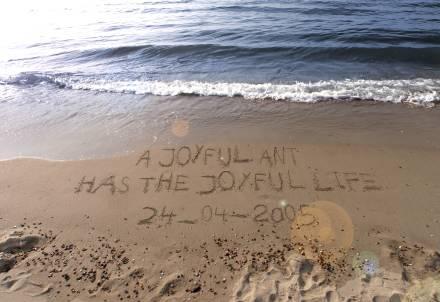 A JOYFUL ANT
HAS THE JOYFUL LIFE
24-04-2005